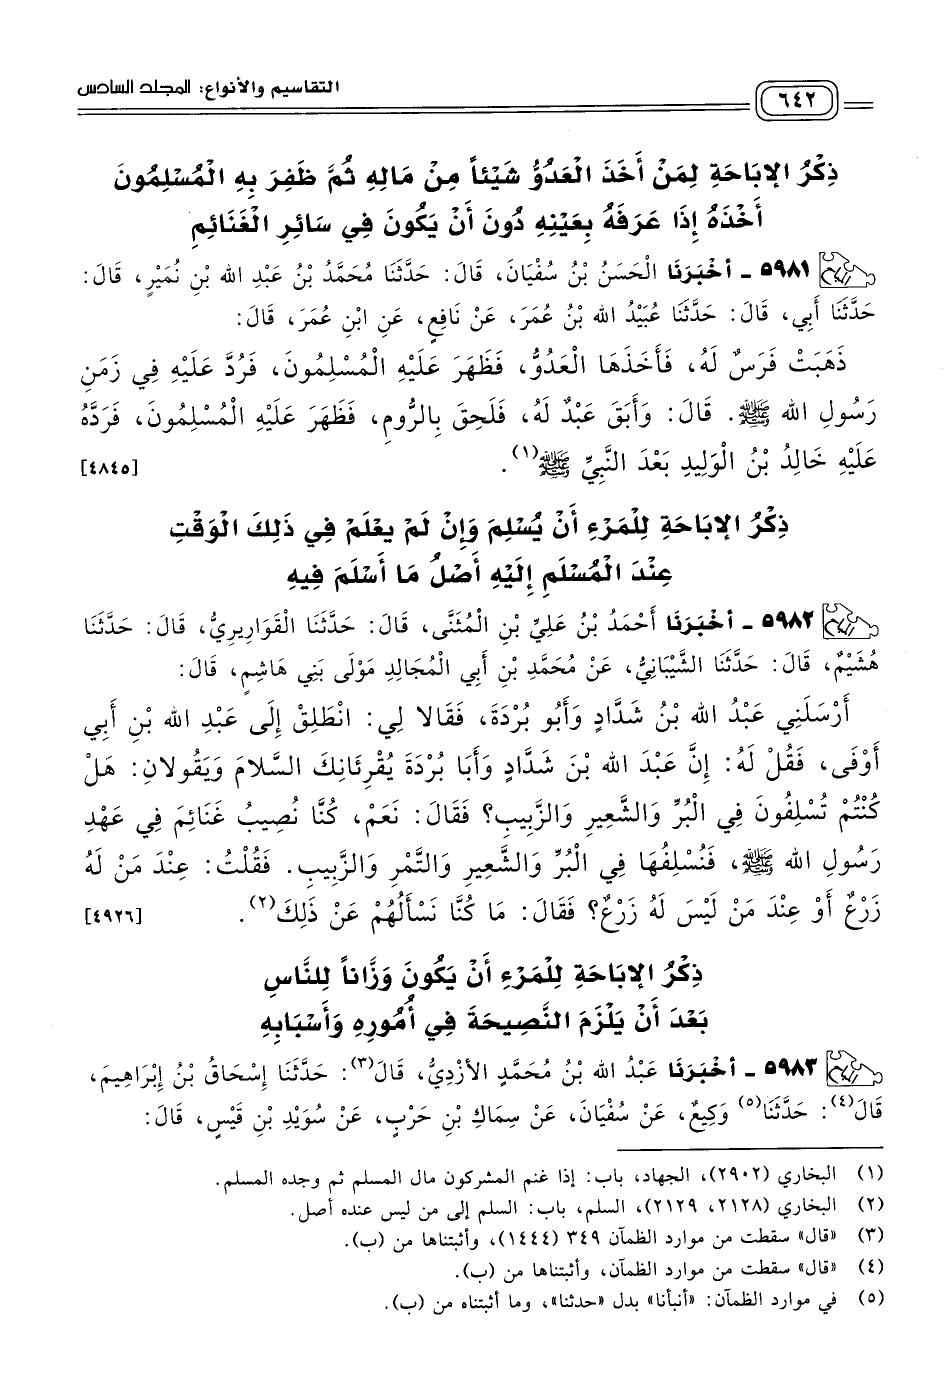 التقاسيم والأنواع: المجلد السادس
٦٤٢
ذِكْرُ الإِبَاحَةِ لِمَنْ أَخَذَ الْعَدُوُّ شَيْئاً مِنْ مَالِهِ ثُمَّ ظَفِرَ بِهِ الْمُسْلِمُونَ
أَخْذَهُ إِذَا عَرَفَهُ بِعَيْنِهِ دُونَ أَنْ يَكُونَ فِي سَائِرِ الْغَنَائِمِ
٥٩٨١ - أَخْبَرَنَا الْحَسَنُ بْنُ سُفْيَانَ، قَالَ: حَدَّثَنَا مُحَمَّدُ بْنُ عَبْدِ الله بْنِ نُمَيْرٍ، قَالَ:
حَدَّثَنَا أَبِي، قَالَ: حَدَّثَنَا عُبَيْدُ الله بْنُ عُمَرَ، عَنْ نَافِعٍ، عَنِ ابْنِ عُمَرَ، قَالَ:
ذَهَبَتْ فَرَسٌ لَهُ، فَأَخَذَهَا الْعَدُوُّ، فَظَهَرَ عَلَيْهِ الْمُسْلِمُونَ، فَرُدَّ عَلَيْهِ فِي زَمَنِ
رَسُولِ الله ﷺ. قَالَ: وَأَبَقَ عَبْدٌ لَهُ، فَلَحِقَ بِالرُّومِ، فَظَهَرَ عَلَيْهِ الْمُسْلِمُونَ، فَرَدَّهُ
عَلَيْهِ خَالِدُ بْنُ الْوَلِيدِ بَعْدَ النَّبِيِّ ﷺ(١). [٤٨٤٥]
ذِكْرُ الإِبَاحَةِ لِلْمَرْءِ أَنْ يُسْلِمَ وَإِنْ لَمْ يَعْلَمْ فِي ذَلِكَ الْوَقْتِ
عِنْدَ الْمُسْلَمِ إِلَيْهِ أَصْلُ مَا أَسْلَمَ فِيهِ
٥٩٨٢ - أَخْبَرَنَا أَحْمَدُ بْنُ عَلِيِّ بْنِ الْمُثَنَّى، قَالَ: حَدَّثَنَا الْقَوَارِيرِيُّ، قَالَ: حَدَّثَنَا
هُشَيْمٌ، قَالَ: حَدَّثَنَا الشَّيْبَانِيُّ، عَنْ مُحَمَّدِ بْنِ أَبِي الْمُجَالِدِ مَوْلَى بَنِي هَاشِمٍ، قَالَ:
أَرْسَلَنِي عَبْدُ الله بْنُ شَدَّادٍ وَأَبُو بُرْدَةَ، فَقَالا لِي: انْطَلِقْ إِلَى عَبْدِ الله بْنِ أَبِي
أَوْفَى، فَقُلْ لَهُ: إِنَّ عَبْدَ الله بْنَ شَدَّادٍ وَأَبَا بُرْدَةَ يُقْرِئَانِكَ السَّلامَ وَيَقُولانِ: هَلْ
كُنْتُمْ تُسْلِفُونَ فِي الْبُرِّ وَالشَّعِيرِ وَالزَّبِيبِ؟ فَقَالَ: نَعَمْ، كُنَّا نُصِيبُ غَنَائِمَ فِي عَهْدِ
رَسُولِ الله ﷺ، فَنُسْلِفُهَا فِي الْبُرِّ وَالشَّعِيرِ وَالتَّمْرِ وَالزَّبِيبِ. فَقُلْتُ: عِنْدَ مَنْ لَهُ
زَرْعٌ أَوْ عِنْدَ مَنْ لَيْسَ لَهُ زَرْعٌ؟ فَقَالَ: مَا كُنَّا نَسْأَلُهُمْ عَنْ ذَلِكَ(٢). [٤٩٢٦]
ذِكْرُ الإِبَاحَةِ لِلْمَرْءِ أَنْ يَكُونَ وَزَّاناً لِلنَّاسِ
بَعْدَ أَنْ يَلْزَمَ النَّصِيحَةَ فِي أُمُورِهِ وَأَسْبَابِهِ
٥٩٨٣ - أَخْبَرَنَا عَبْدُ الله بْنُ مُحَمَّدٍ الأَزْدِيُّ، قَالَ(٣): حَدَّثَنَا إِسْحَاقُ بْنُ إِبْرَاهِيمَ،
قَالَ(٤): حَدَّثَنَا(٥) وَكِيعٌ، عَنْ سُفْيَانَ، عَنْ سِمَاكِ بْنِ حَرْبٍ، عَنْ سُوَيْدِ بْنِ قَيْسٍ، قَالَ:
(١) البخاري (٢٩٠٢)، الجهاد، باب: إذا غنم المشركون مال المسلم ثم وجده المسلم.
(٢) البخاري (٢١٢٨، ٢١٢٩)، السلم، باب: السلم إلى من ليس عنده أصل.
(٣) «قال» سقطت من موارد الظمآن ٣٤٩ (١٤٤٤)، وأثبتناها من (ب).
(٤) «قال» سقطت من موارد الظمآن، وأثبتناها من (ب).
(٥) في موارد الظمآن: «أنبأنا» بدل «حدثنا»، وما أثبتناه من (ب).